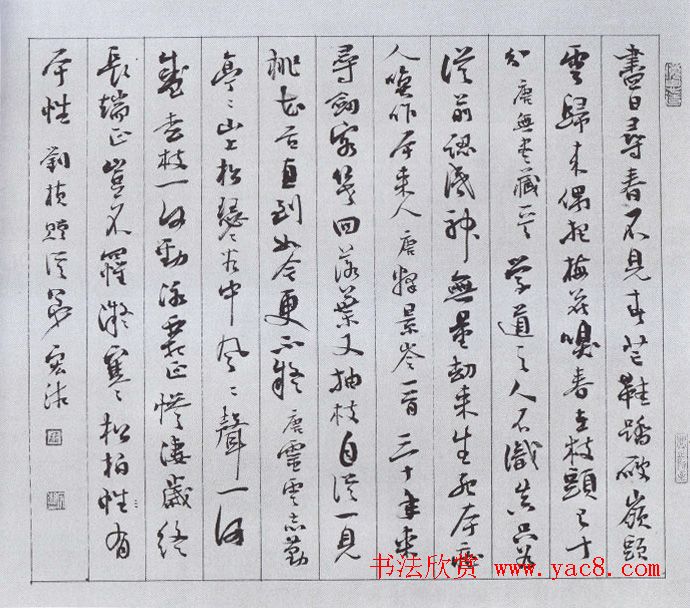 盡日尋春不見春芒鞋踏破嶺頭
雲歸來偶把梅花嗅春在枝頭已十
分 唐無盡藏尼 學道之人不識真只為
從前認識神無量劫來生死本癡
人喚作本來人 唐釋景岑一首 三十年來
尋劍客幾回落葉又抽枝自從一見
桃花后直到如今更不疑 唐靈雲志勤
亭〻山上松瑟〻谷中風〻聲一何
盛松枝一何勁冰霜正慘凄歲終
長端正豈不罹凝寒松柏性有
本性 劉楨贈從弟
书法欣赏 www.yac8.com